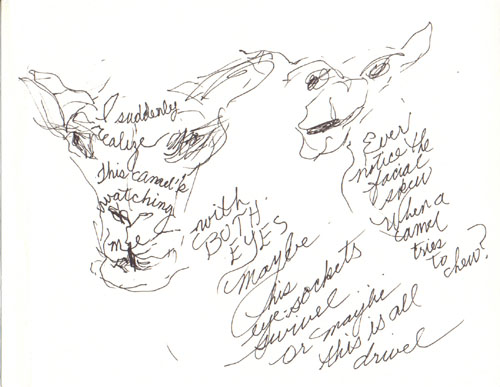 I suddenly
realize
this camel's
watching
me
with
BOTH
EYES
maybe
his
eye sockets
swivel...
or maybe
this is all
drivel
Ever
notice the
facial
skew
When a
camel
tries
to chew?